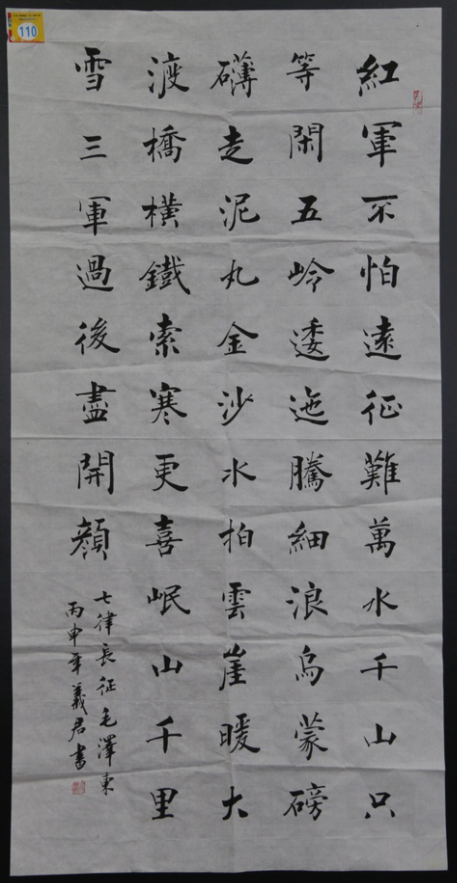 110
紅軍不怕遠征難萬水千山只
等閑五岭逶迤騰細浪烏蒙磅
礴走泥丸金沙水拍雲崖暖大
渡橋橫鐵索寒更喜岷山千里
雪三軍過後盡開顏
七律長征毛澤東
丙申年義君書